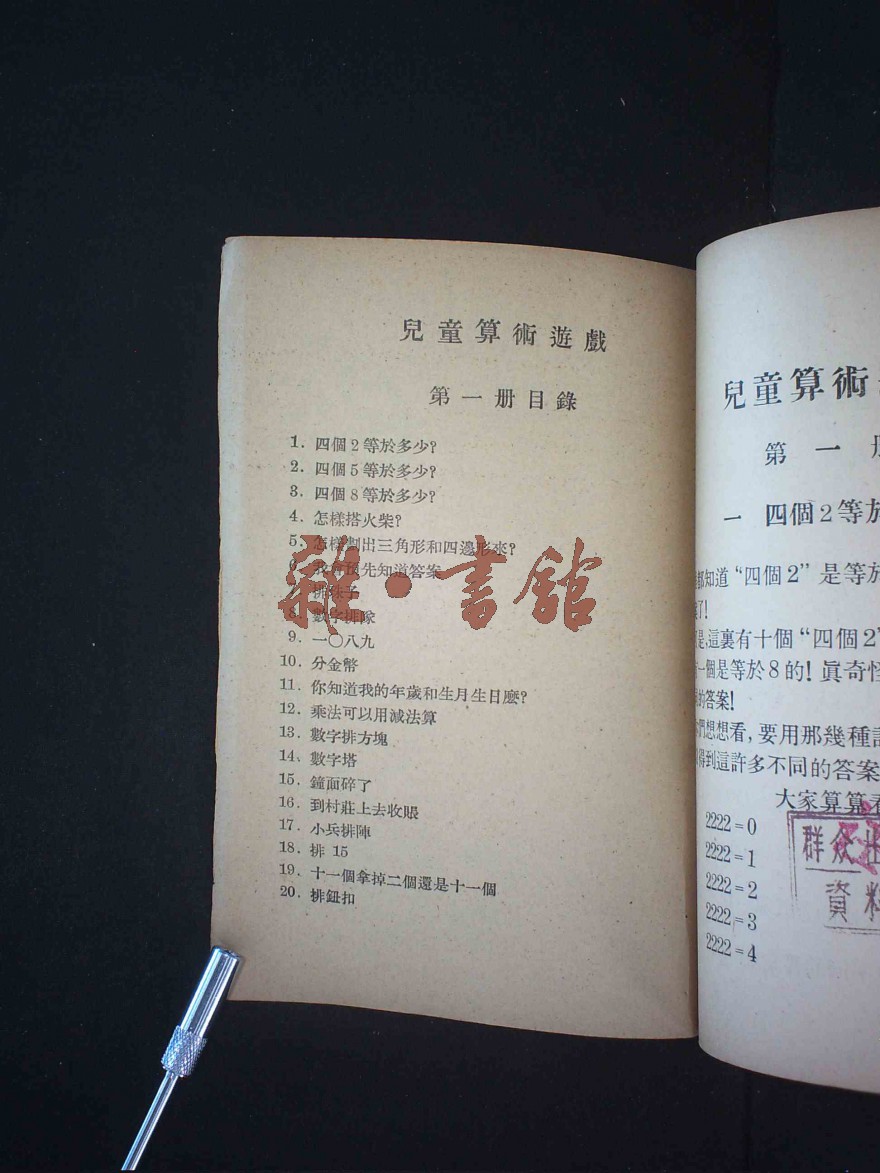 兒童算術遊戲
第一册目錄
1. 四個2等於多少?
2. 四個5等於多少?
3. 四個8等於多少?
4. 怎樣搭火柴?
5. 怎樣劃出三角形和四邊形來?
6. 我會預先知道答案
7. 排珠子
8. 數字排隊
9. 一〇八九
10. 分金幣
11. 你知道我的年歲和生月生日麽?
12. 乘法可以用減法算
13. 數字排方塊
14. 數字塔
15. 鐘面碎了
16. 到村莊上去收賬
17. 小兵排陣
18. 排 15
19. 十一個拿掉二個還是十一個
20. 排鈕扣
雜·書館
兒童算術
第一
一 四個2等於
都知道“四個2”是等於
了!
是,這裏有十個“四個2”
一個是等於8的!眞奇怪
的答案!
們想想看,要用那幾種
得到這許多不同的答案
大家算算看
2222=0
2222=1
2222=2
2222=3
2222=4
群众
資料